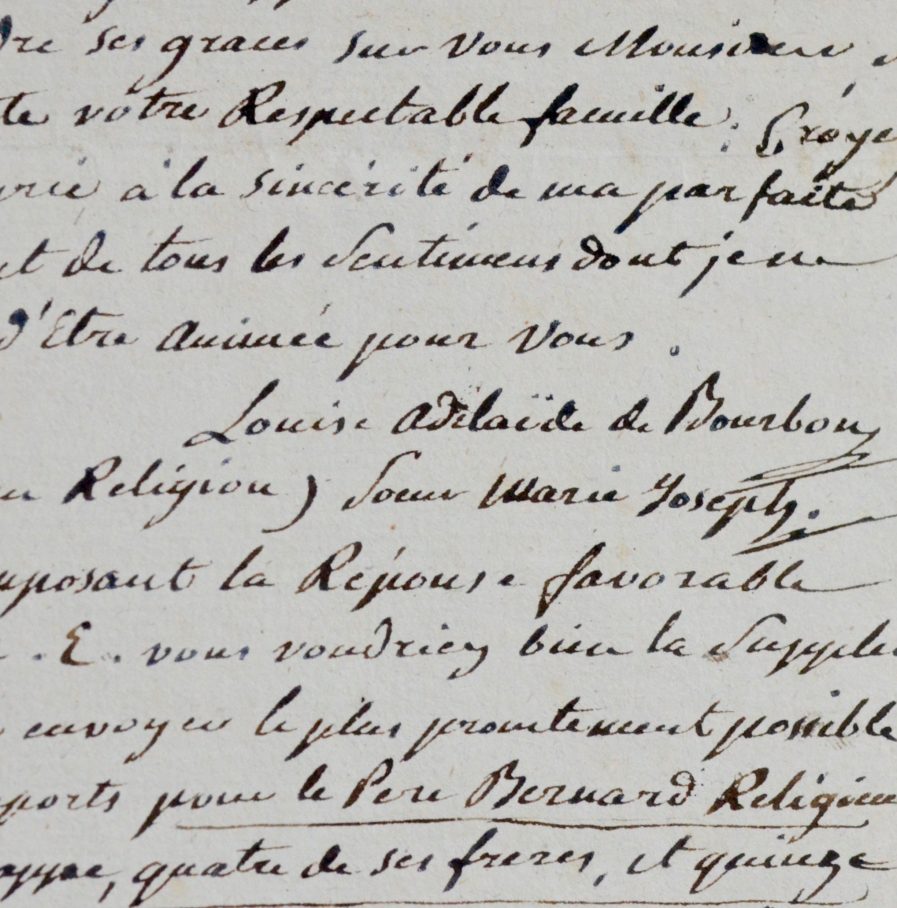 dre ses graces sur vous Monsieur,
te votre Respectable famille. Croye
rié à la sincérité de ma parfaite
et de tous les Sentimens dont je ne
d'Etre Animée pour Vous.
Louise Adelaïde de Bourbon
en Religion) Soeur Marie Joseph.
upposant la Réponse favorable
. E. vous voudriez bien la Supplie
envoyer le plus promtement possible
ports pour le Pere Bernard Religieu
appe, quatre de ses freres, et quinze